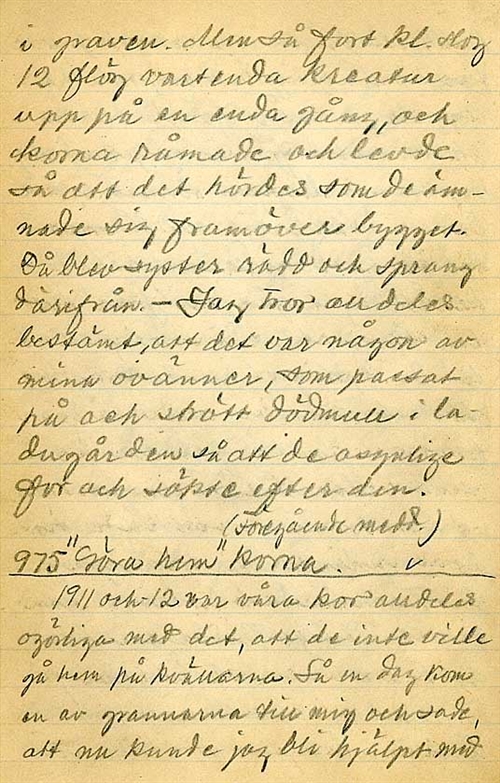 i graven. Men så fort kl. slog
12 flög vartenda kreatur
upp på en enda gång, och
korna råmade och levde
så att det hördes som de äm-
nade sig framöver bygget.
Då blev syster rädd och sprang
därifrån. — Jag tror alldeles
bestämt, att det var någon av
mina ovänner, som passat
på och strött dödmull i la-
dugården så att de osynlige
for och sökte efter den.
(Föregående medd.)
975 "Göra hem" korna. v
1911 och 12 var våra kor alldeles
ogörliga med det, att de inte ville
gå hem på kvällarna. Så en dag kom
en av grannarna till mig och sade,
att nu kunde jag bli hjälpt med